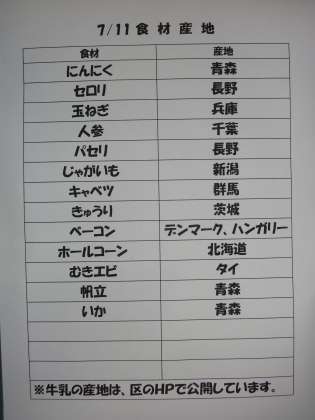 7/11 食材産地
食材 産地
にんにく 青森
セロリ 長野
玉ねぎ 兵庫
人参 千葉
パセリ 長野
じゃがいも 新潟
キャベツ 群馬
きゅうり 茨城
ベーコン デンマーク、ハンガリー
ホールコーン 北海道
むきエビ タイ
帆立 青森
いか 青森
※牛乳の産地は、区のHPで公開しています。